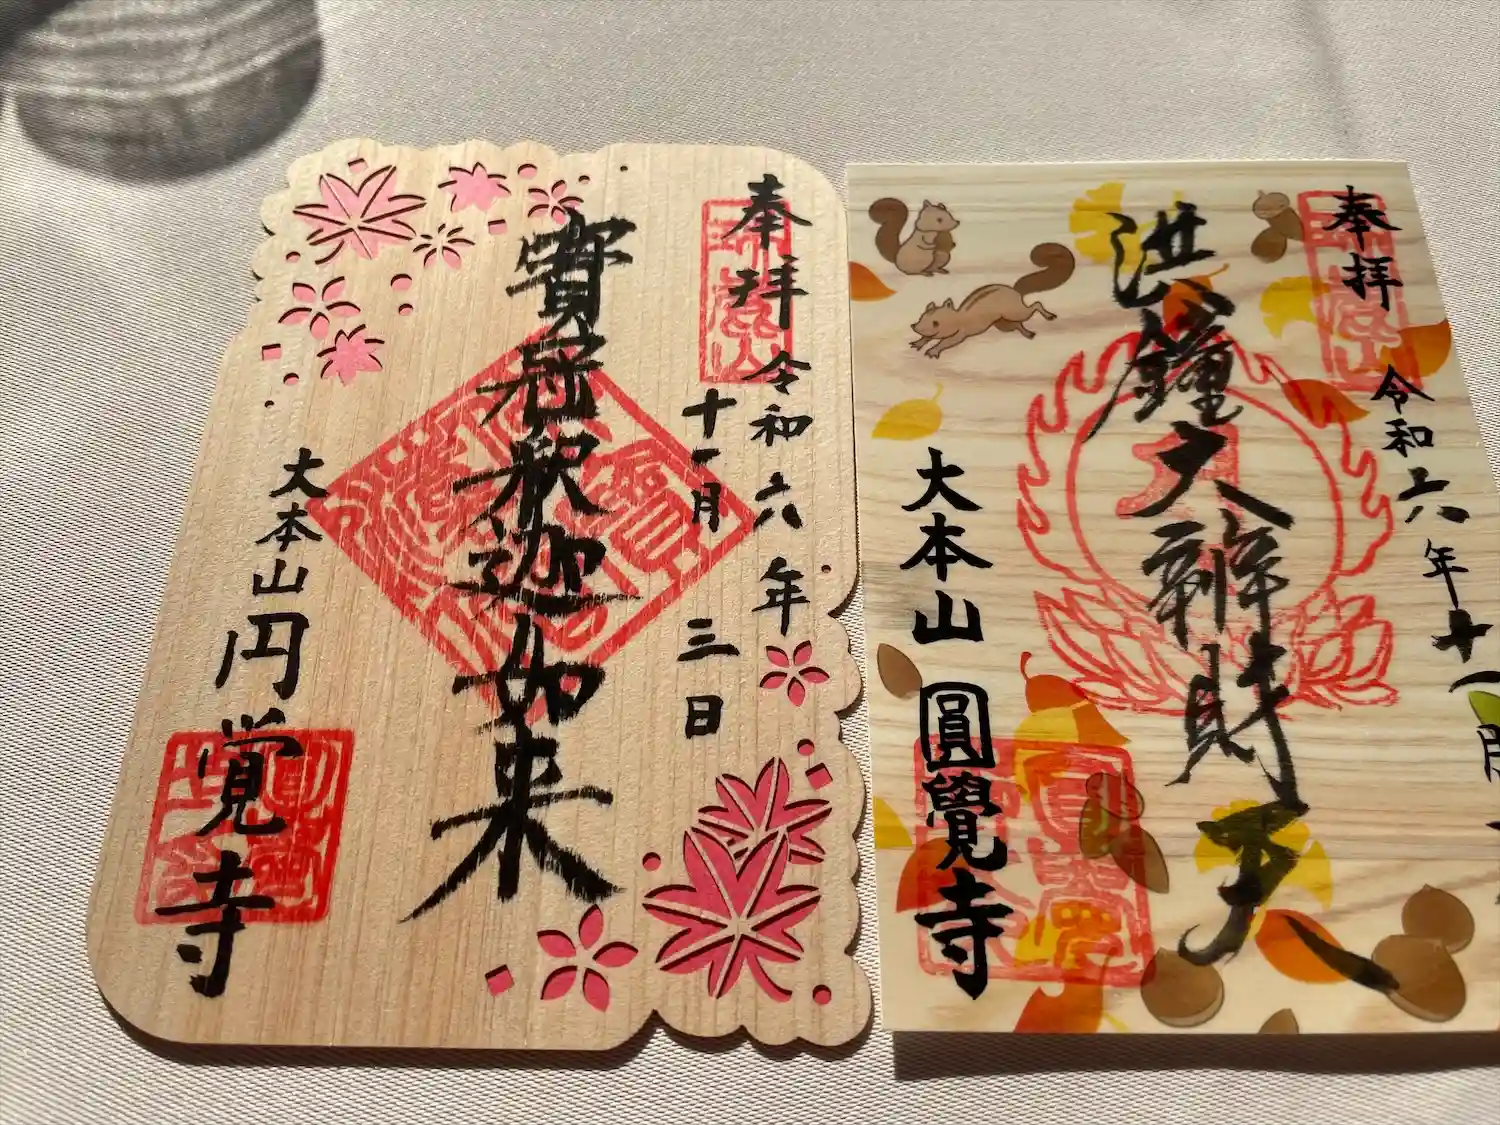 奉拝
令和六年
十一月三日
寳冠釈迦如来
大本山円覚寺
奉拝
令和六年
十一月
洪鐘大辨財天
大本山圓覺寺